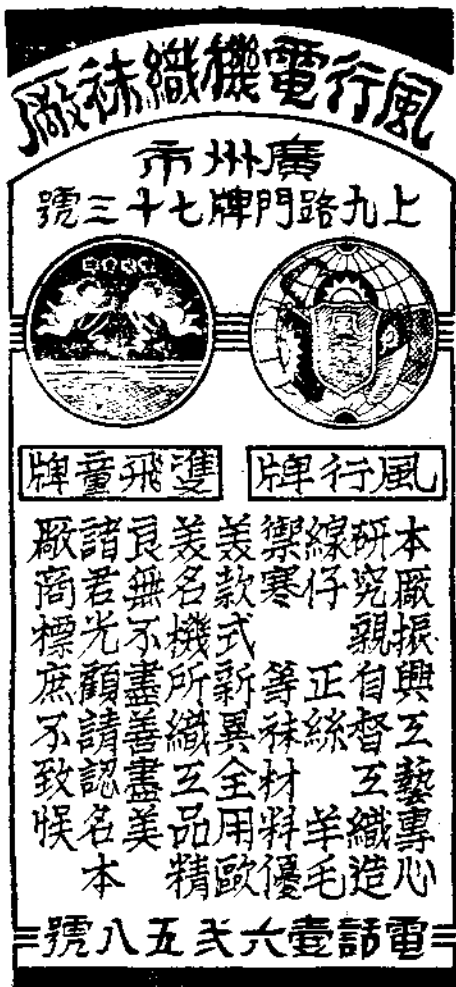 風行電機織袜廠
廣州市
上九路門牌七十三號
風行牌
雙飛童牌
本廠振興工藝專心
研究親自督工織造
線仔 正絲 羊毛
禦寒 等袜材料優
美款式新異全用歐
美名機所織工品精
良無不盡善盡美
諸君光顧請認名本
廠商標庶不致悞
電話壹六弍五八號